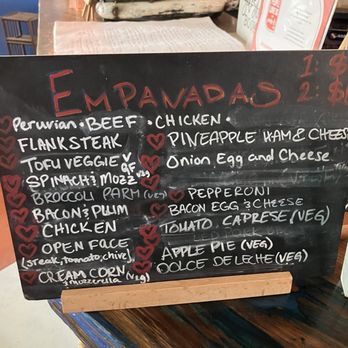 EMPANADAS
1: $
2: $
Peruvian • BEEF • CHICKEN •
FLANKSTEAK
TOFU VEGGIE V GF
SPINACH & MOZZ veg
BROCCOLI PARM (veg)
BACON & PLUM
CHICKEN
OPEN FACE
(steak, tomato, chive)
CREAM CORN
& mozzerella (veg)
PINEAPPLE HAM & CHEESE
Onion Egg and Cheese
PEPPERONI
BACON EGG & CHEESE
TOMATO CAPRESE (VEG)
APPLE PIE (VEG)
DOLCE DE LECHE (VEG)